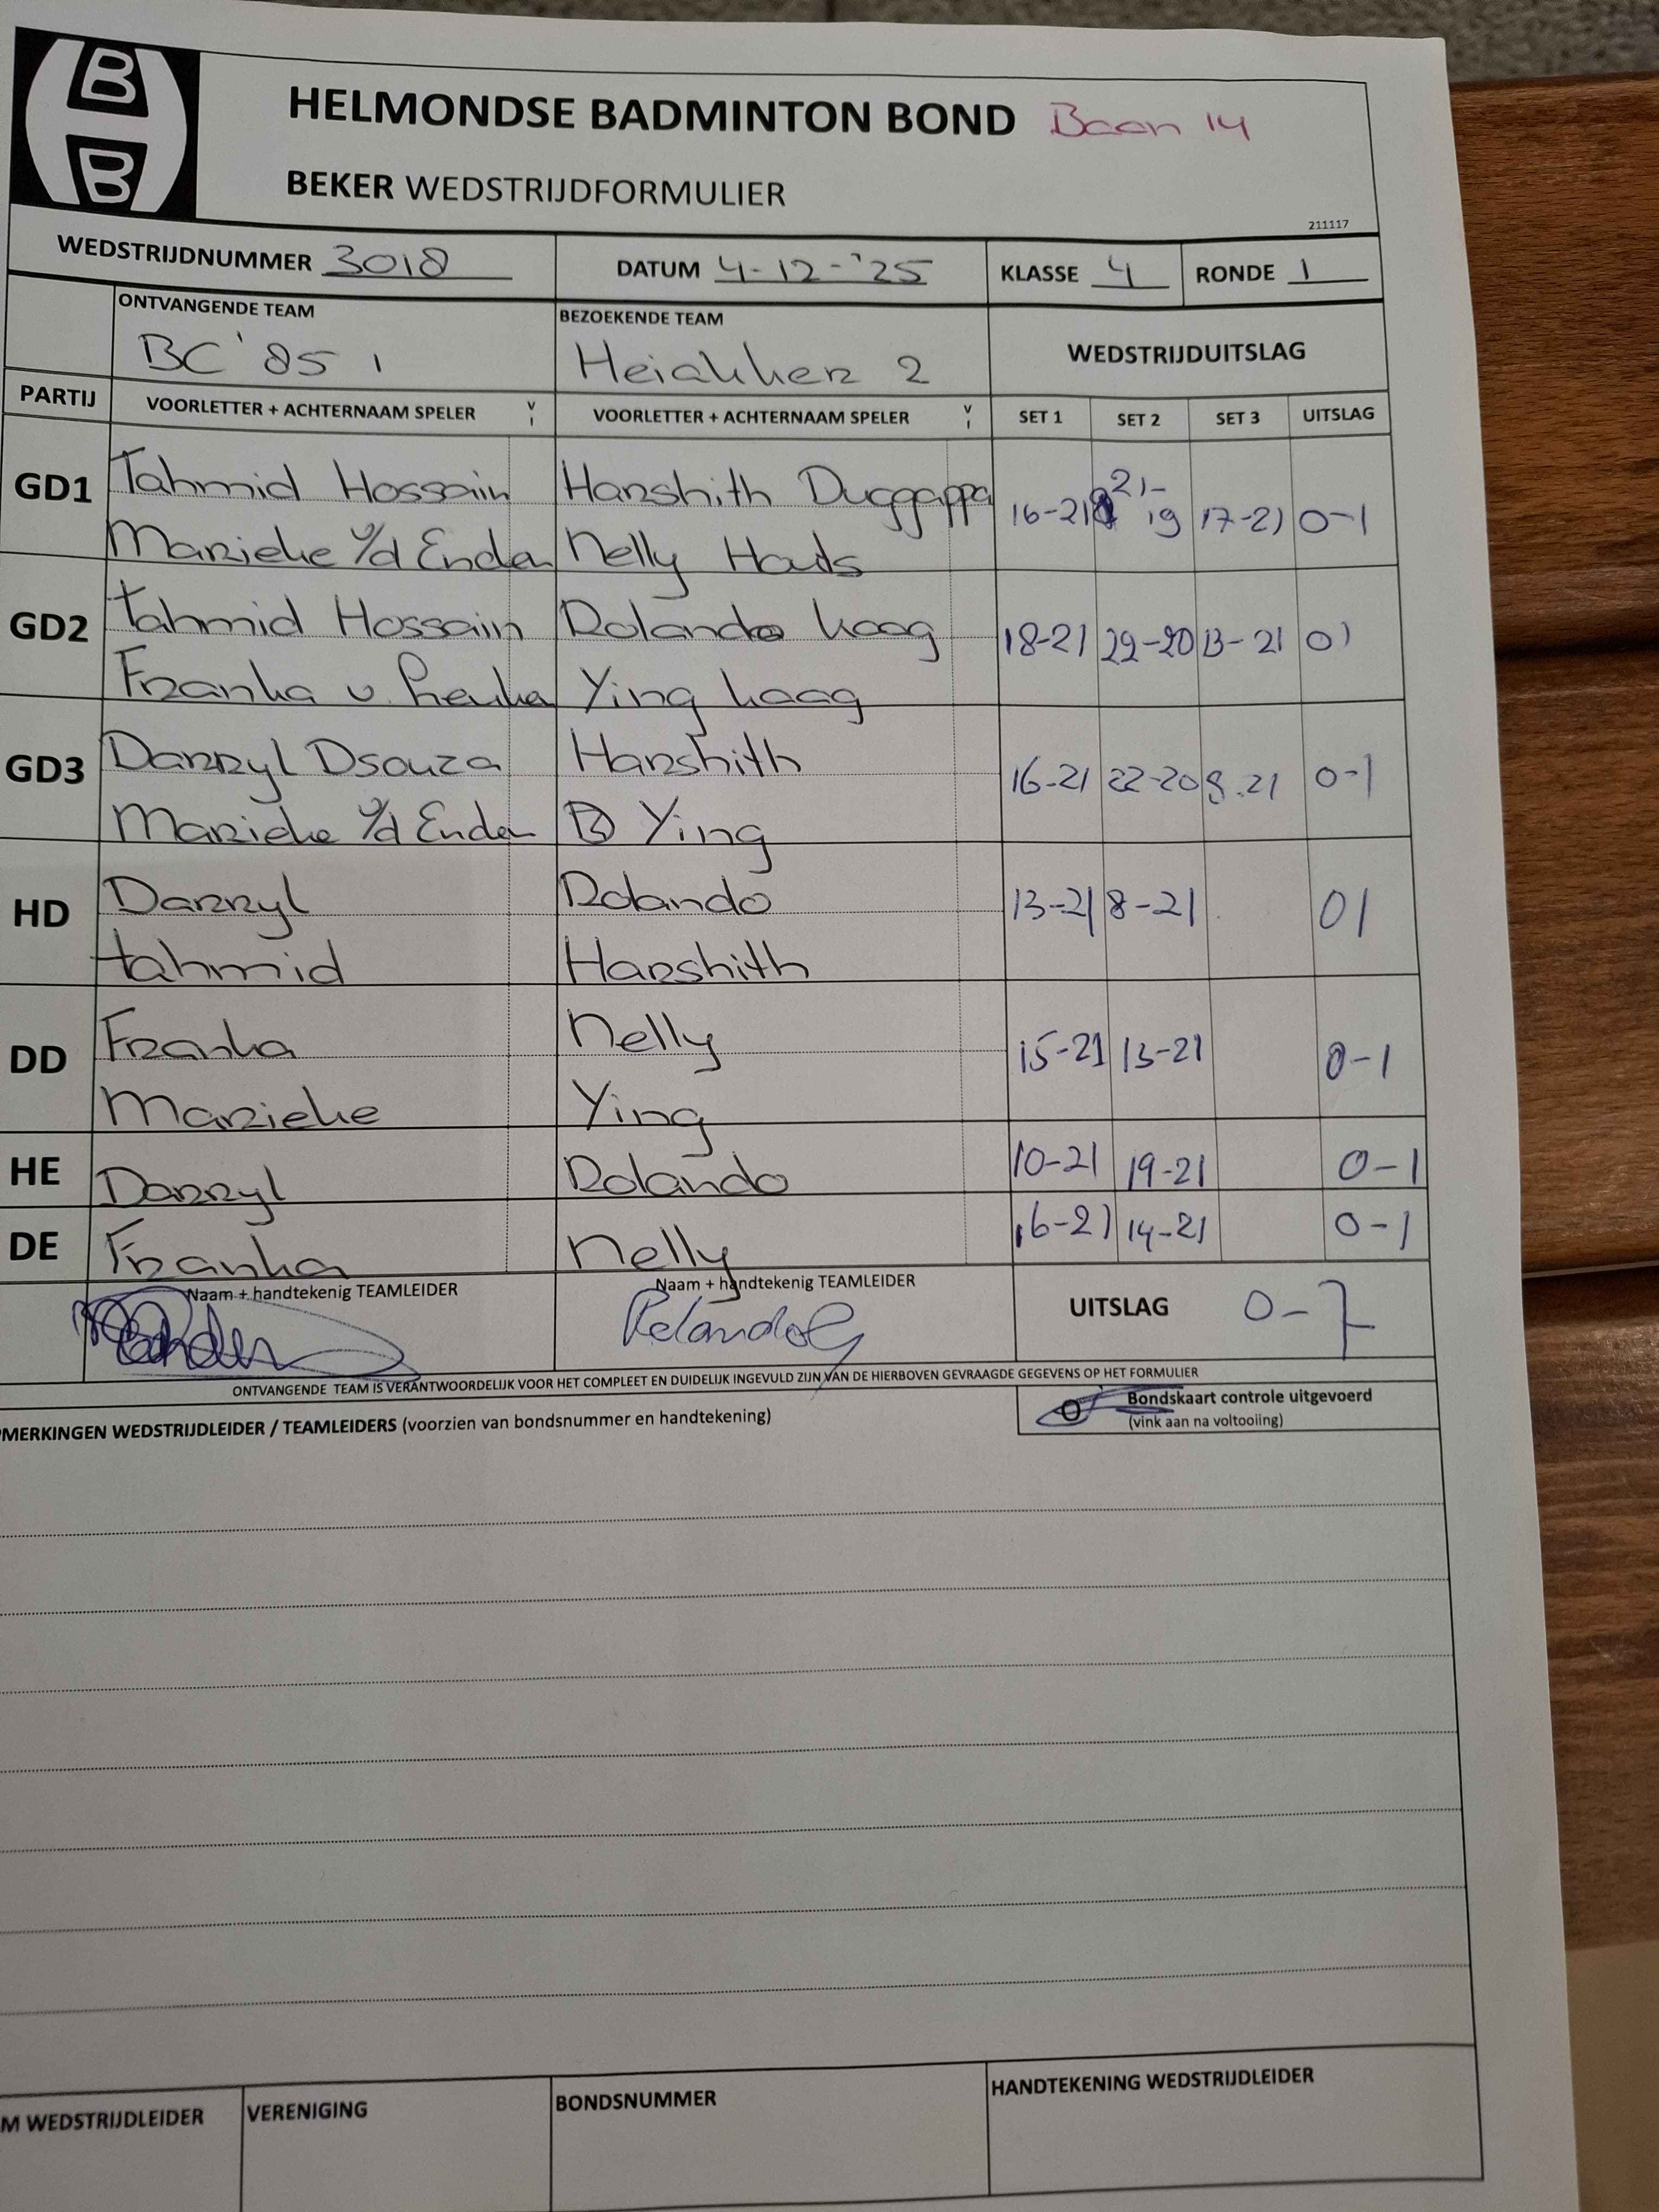 B
B
HELMONDSE BADMINTON BOND Baan 14
BEKER WEDSTRIJDFORMULIER
211117
WEDSTRIJDNUMMER 3018 DATUM 4-12-'25 KLASSE 4 RONDE 1
ONTVANGENDE TEAM BEZOEKENDE TEAM WEDSTRIJDUITSLAG
BC '85 1 Heiakker 2
PARTIJ VOORLETTER + ACHTERNAAM SPELER V I VOORLETTER + ACHTERNAAM SPELER V I SET 1 SET 2 SET 3 UITSLAG
GD1 Tahmid Hossain Harshith Duggappa 16-21 21-19 17-21 0-1
Marieke v/d Enden Nelly
GD2 Tahmid Hossain Rolando Koag 18-21 22-20 13-21 01
Franka v. Ying Koag
GD3 Darryl Dsouza Harshith 16-21 22-20 8-21 0-1
Marieke v/d Enden Ying
HD Darryl Rolando 13-21 8-21 01
Tahmid Harshith
DD Franka Nelly 15-21 13-21 0-1
Marieke Ying
HE Darryl Rolando 10-21 19-21 0-1
DE Franka Nelly 16-21 14-21 0-1
Naam + handtekenig TEAMLEIDER Naam + handtekenig TEAMLEIDER UITSLAG 0-7
ONTVANGENDE TEAM IS VERANTWOORDELIJK VOOR HET COMPLEET EN DUIDELIJK INGEVULD ZIJN VAN DE HIERBOVEN GEVRAAGDE GEGEVENS OP HET FORMULIER
MERKINGEN WEDSTRIJDLEIDER / TEAMLEIDERS (voorzien van bondsnummer en handtekening) O Bondskaart controle uitgevoerd
(vink aan na voltooiing)
M WEDSTRIJDLEIDER VERENIGING BONDSNUMMER HANDTEKENING WEDSTRIJDLEIDER